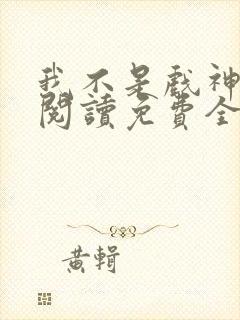 我不是戲神
閱讀免費全
黃輯